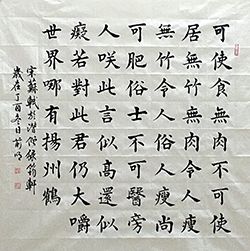 可使食無肉不可
居無竹無肉令人瘦
無竹令人俗人瘦尚
可肥俗士不可醫傍
人咲此言似高還似
癡若對此君仍大嚼
世界哪有揚州鶴
宋蘇軾於潛僧綠筠軒
歲在丁酉冬日前明